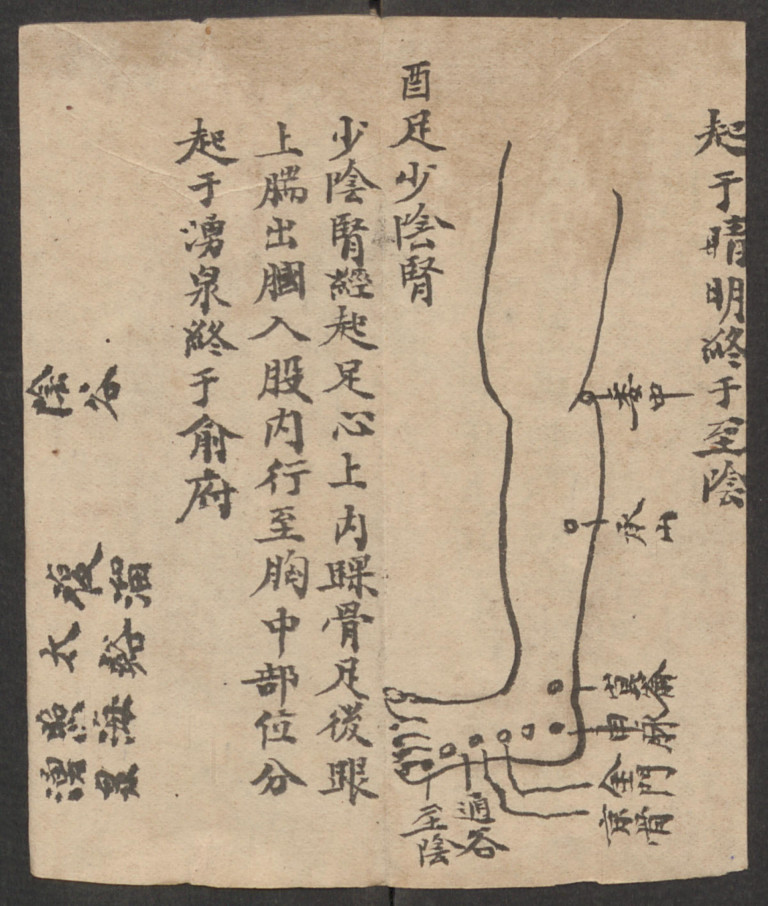 起于晴明終于至陰
委中
承山
崑崙
申脉
金門
京骨
通谷
至陰
酉足少陰腎
少陰腎經起足心上内踝骨足後跟
上腨出膕入股内行至胸中部位分
起于湧泉終于俞府
陰谷
復溜
太谿
照海
湧泉